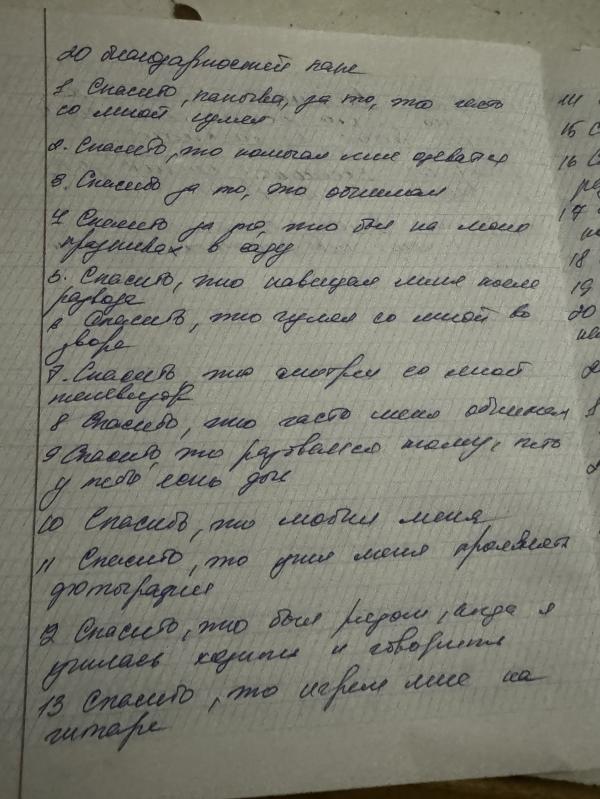 20 благодарностей папе
1 Спасибо, папочка, за то, что часто
со мной гулял
2. Спасибо, что помогал мне одеваться
3. Спасибо за то, что обнимал
4 Спасибо за то, что был на моих
праздниках в саду
5. Спасибо, что навещал меня после
развода
6 Спасибо, что гулял со мной во
дворе
7. Спасибо что смотрел со мной
телевизор
8 Спасибо, что часто меня обнимал
9 Спасибо, что радовался тому, что
у тебя есть
10 Спасибо, что любил меня
11 Спасибо, что учил меня проявлять
фотографии
12 Спасибо, что был рядом, когда я
училась ходить и говорить
13 Спасибо, что играл мне на
гитаре
14
15 С
16 С
17
18
19
20